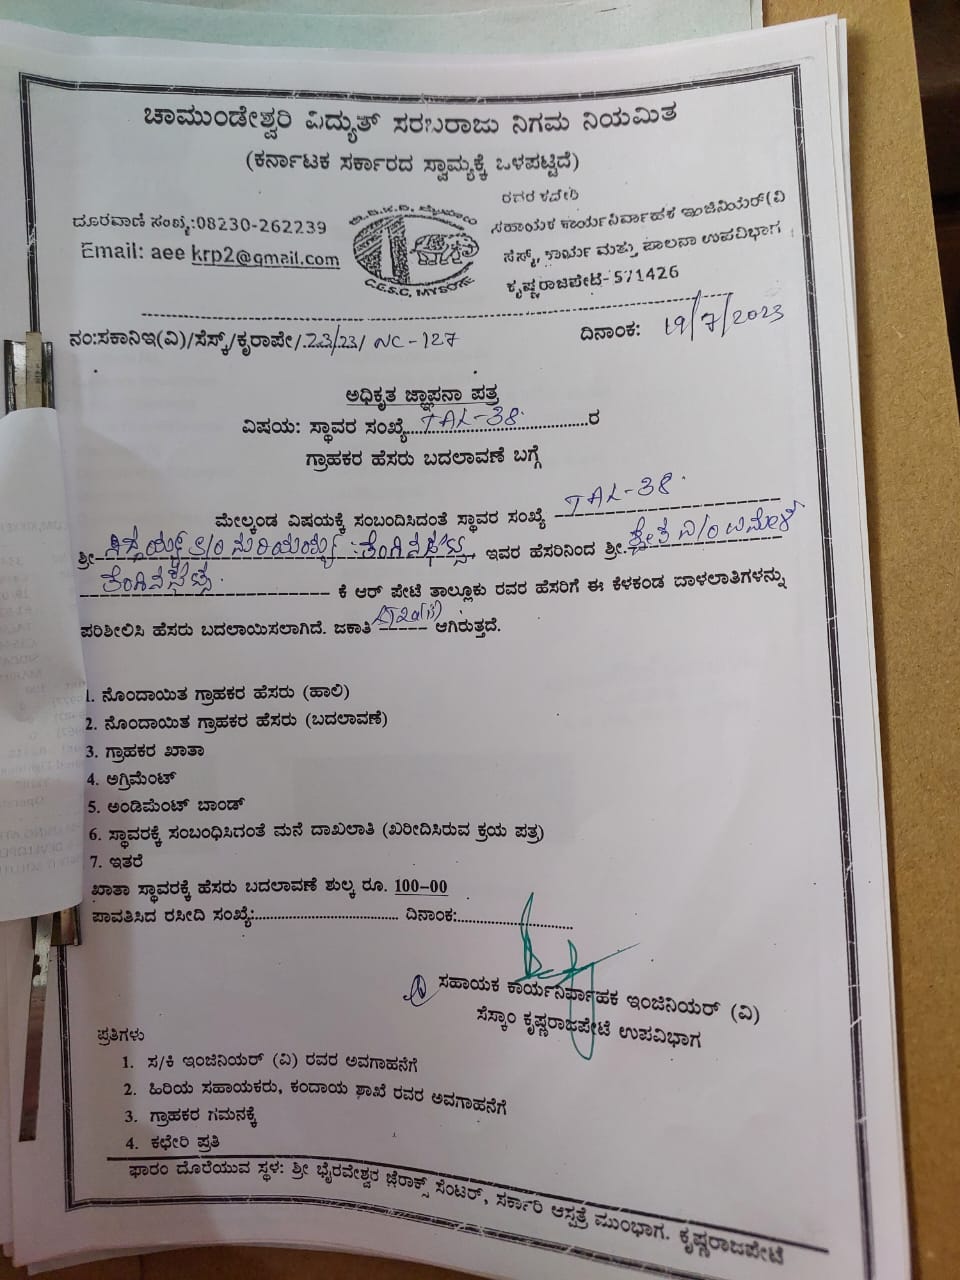 ಚಾಮುಂಡೇಶ್ವರಿ ವಿದ್ಯುತ್ ಸರಬರಾಜು ನಿಗಮ ನಿಯಮಿತ
(ಕರ್ನಾಟಕ ಸರ್ಕಾರದ ಸ್ವಾಮ್ಯಕ್ಕೆ ಒಳಪಟ್ಟಿದೆ)
ದೂರವಾಣಿ ಸಂಖ್ಯೆ:08230-262239
Email: aee krp2@gmail.com
C.E.S.C. MYSORE
ಸಹಾಯಕ ಕಾರ್ಯನಿರ್ವಾಹಕ ಇಂಜಿನಿಯರ್(ವಿ
ಸೆಸ್ಕ್, ಕಾರ್ಯ ಮತ್ತು ಪಾಲನಾ ಉಪವಿಭಾಗ
ಕೃಷ್ಣರಾಜಪೇಟೆ-571426
ನಂ:ಸಕಾನಿಇ(ವಿ)/ಸೆಸ್ಕ್/ಕೃರಾಪೇ/23/23/ NC-127
ದಿನಾಂಕ: 19/7/2023
ಅಧಿಕೃತ ಜ್ಞಾಪನಾ ಪತ್ರ
ವಿಷಯ: ಸ್ಥಾವರ ಸಂಖ್ಯೆ TAL-38 ರ
ಗ್ರಾಹಕರ ಹೆಸರು ಬದಲಾವಣೆ ಬಗ್ಗೆ
ಮೇಲ್ಕಂಡ ವಿಷಯಕ್ಕೆ ಸಂಬಂದಿಸಿದಂತೆ ಸ್ಥಾವರ ಸಂಖ್ಯೆ TAL-38
ಶ್ರೀ ಇವರ ಹೆಸರಿನಿಂದ ಶ್ರೀ.
ಕೆ ಆರ್ ಪೇಟೆ ತಾಲ್ಲೂಕು ರವರ ಹೆಸರಿಗೆ ಈ ಕೆಳಕಂಡ ದಾಳಲಾತಿಗಳನ್ನು
ಪರಿಶೀಲಿಸಿ ಹೆಸರು ಬದಲಾಯಿಸಲಾಗಿದೆ. ಜಕಾತಿ ಆಗಿರುತ್ತದೆ.
1. ನೊಂದಾಯಿತ ಗ್ರಾಹಕರ ಹೆಸರು (ಹಾಲಿ)
2. ನೊಂದಾಯಿತ ಗ್ರಾಹಕರ ಹೆಸರು (ಬದಲಾವಣೆ)
3. ಗ್ರಾಹಕರ ಖಾತಾ
4. ಅಗ್ರಿಮೆಂಟ್
5. ಅಂಡಿಮೆಂಟ್ ಬಾಂಡ್
6. ಸ್ಥಾವರಕ್ಕೆ ಸಂಬಂಧಿಸಿಗಂತೆ ಮನೆ ದಾಖಲಾತಿ (ಖರೀದಿಸಿರುವ ಕ್ರಯ ಪತ್ರ)
7. ಇತರೆ
ಖಾತಾ ಸ್ಥಾವರಕ್ಕೆ ಹೆಸರು ಬದಲಾವಣೆ ಶುಲ್ಕ ರೂ. 100-00
ಪಾವತಿಸಿದ ರಸೀದಿ ಸಂಖ್ಯೆ:........................... ದಿನಾಂಕ:.......................
ಸಹಾಯಕ ಕಾರ್ಯನಿರ್ವಾಹಕ ಇಂಜಿನಿಯರ್ (ವಿ)
ಸೆಸ್ಕಾಂ ಕೃಷ್ಣರಾಜಪೇಟೆ ಉಪವಿಭಾಗ
ಪ್ರತಿಗಳು
1. ಸ/ಕಿ ಇಂಜಿನಿಯರ್ (ವಿ) ರವರ ಅವಗಾಹನೆಗೆ
2. ಹಿರಿಯ ಸಹಾಯಕರು, ಕಂದಾಯ ಶಾಖೆ ರವರ ಅವಗಾಹನೆಗೆ
3. ಗ್ರಾಹಕರ ಗಮನಕ್ಕೆ
4. ಕಛೇರಿ ಪ್ರತಿ
ಫಾರಂ ದೊರೆಯುವ ಸ್ಥಳ: ಶ್ರೀ ಭೈರವೇಶ್ವರ ಜೆರಾಕ್ಸ್ ಸೆಂಟರ್, ಸರ್ಕಾರಿ ಆಸ್ಪತ್ರೆ ಮುಂಭಾಗ. ಕೃಷ್ಣರಾಜಪೇಟೆ